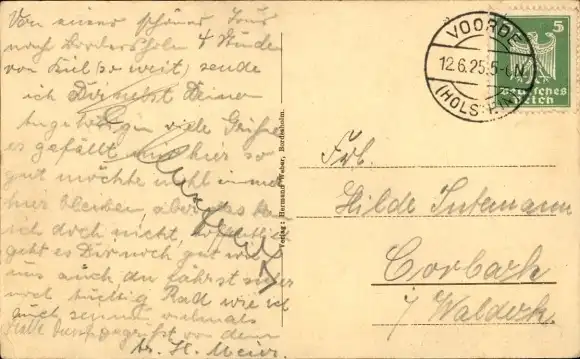 Von einer schönen Tour
nach Bordesholm 4 Stunden
von Kiel (so weit) sende
ich Dir nebst Deinen
Angehörigen viele Grüße
es gefällt mir hier so
gut möchte wohl immer
hier bleiben, aber das kann
ich doch nicht, hoffentlich
geht es Dir noch gut wie
uns auch du fährst sicher
noch tüchtig Rad wie ich
auch, vielmals
gegrüßt von dem
H. Meier.
Verlag: Hermann Weber, Bordesholm.
VOORDE
12.6.25.5-6N.
(HOLSTEIN)
5
Deutsches
Reich
Frl.
Hilde Intemann
Corbach
i/ Waldeck.